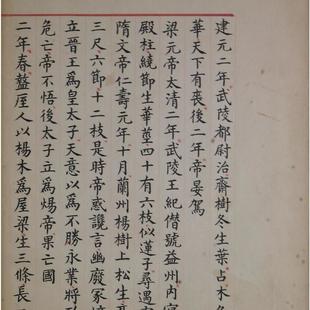 建元二年武陵都尉治齋樹冬生葉占木
華天下有喪後二年帝晏駕
梁元帝太清二年武陵王紀僣號益州內
殿柱繞節生華莖四十有六枝似蓮子尋遇
隋文帝仁壽元年十月蘭州楊樹上松生高
三尺六節十二枝是時帝惑讒言幽廢冢嫡
立晉王爲皇太子天意以爲不勝永業將
危亡帝不悟後太子立爲煬帝果亡國
二年春盩厔人以楊木爲屋梁生三條長